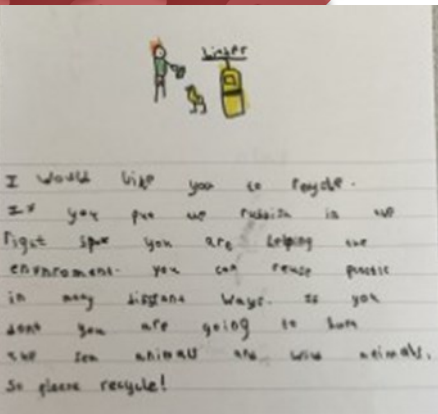 I would like you to recycle.
If you put the rubbish in the
right spot you are helping the
environment. you can reuse plastic
in many diffrent ways. If you
dont you are going to hurt
the sea animals and wild animals.
So please recycle!